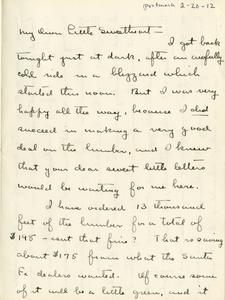 (postmark 2-20-12
My Own Little Sweetheart —
I got back
tonight just at dark, after an awfully
cold ride in a blizzard which
started this noon. But I was very
happy all the way, because I did
succeed in making a very good
deal on the lumber, and I knew
that your dear sweet little letters
would be waiting for me here.
I have ordered 13 thousand
feet of the lumber for a total of
$195 — isn't that fine? That is saving
about $175 from what the Santa
Fe dealers wanted. Of course some
of it will be a little green, and it